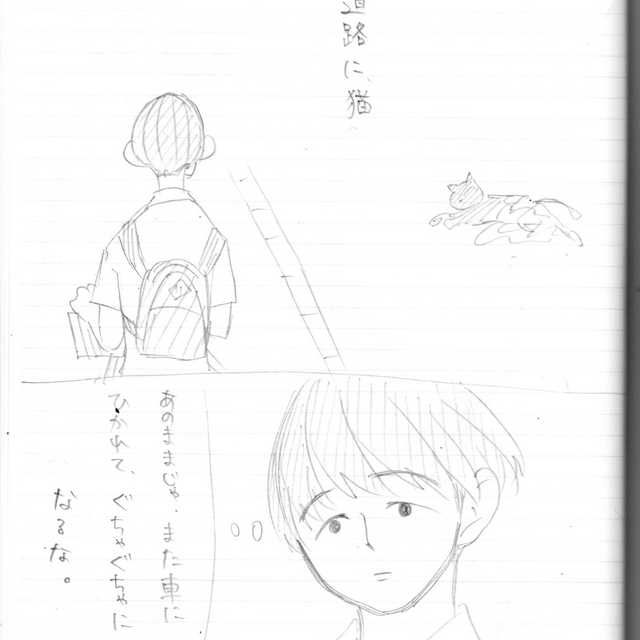 道路に、猫
あのままじゃ、また車に
ひかれて、ぐちゃぐちゃに
なるな。